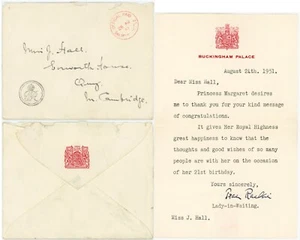 Miss J. Hall.
Nr. Cambridge.
BUCKINGHAM PALACE
August 24th, 1951.
Dear Miss Hall,
Princess Margaret desires
me to thank you for your kind message
of congratulations.
It gives Her Royal Highness
great happiness to know that the
thoughts and good wishes of so many
people are with her on the occasion
of her 21st birthday.
Yours sincerely,
Lady-in-Waiting.
Miss J. Hall.